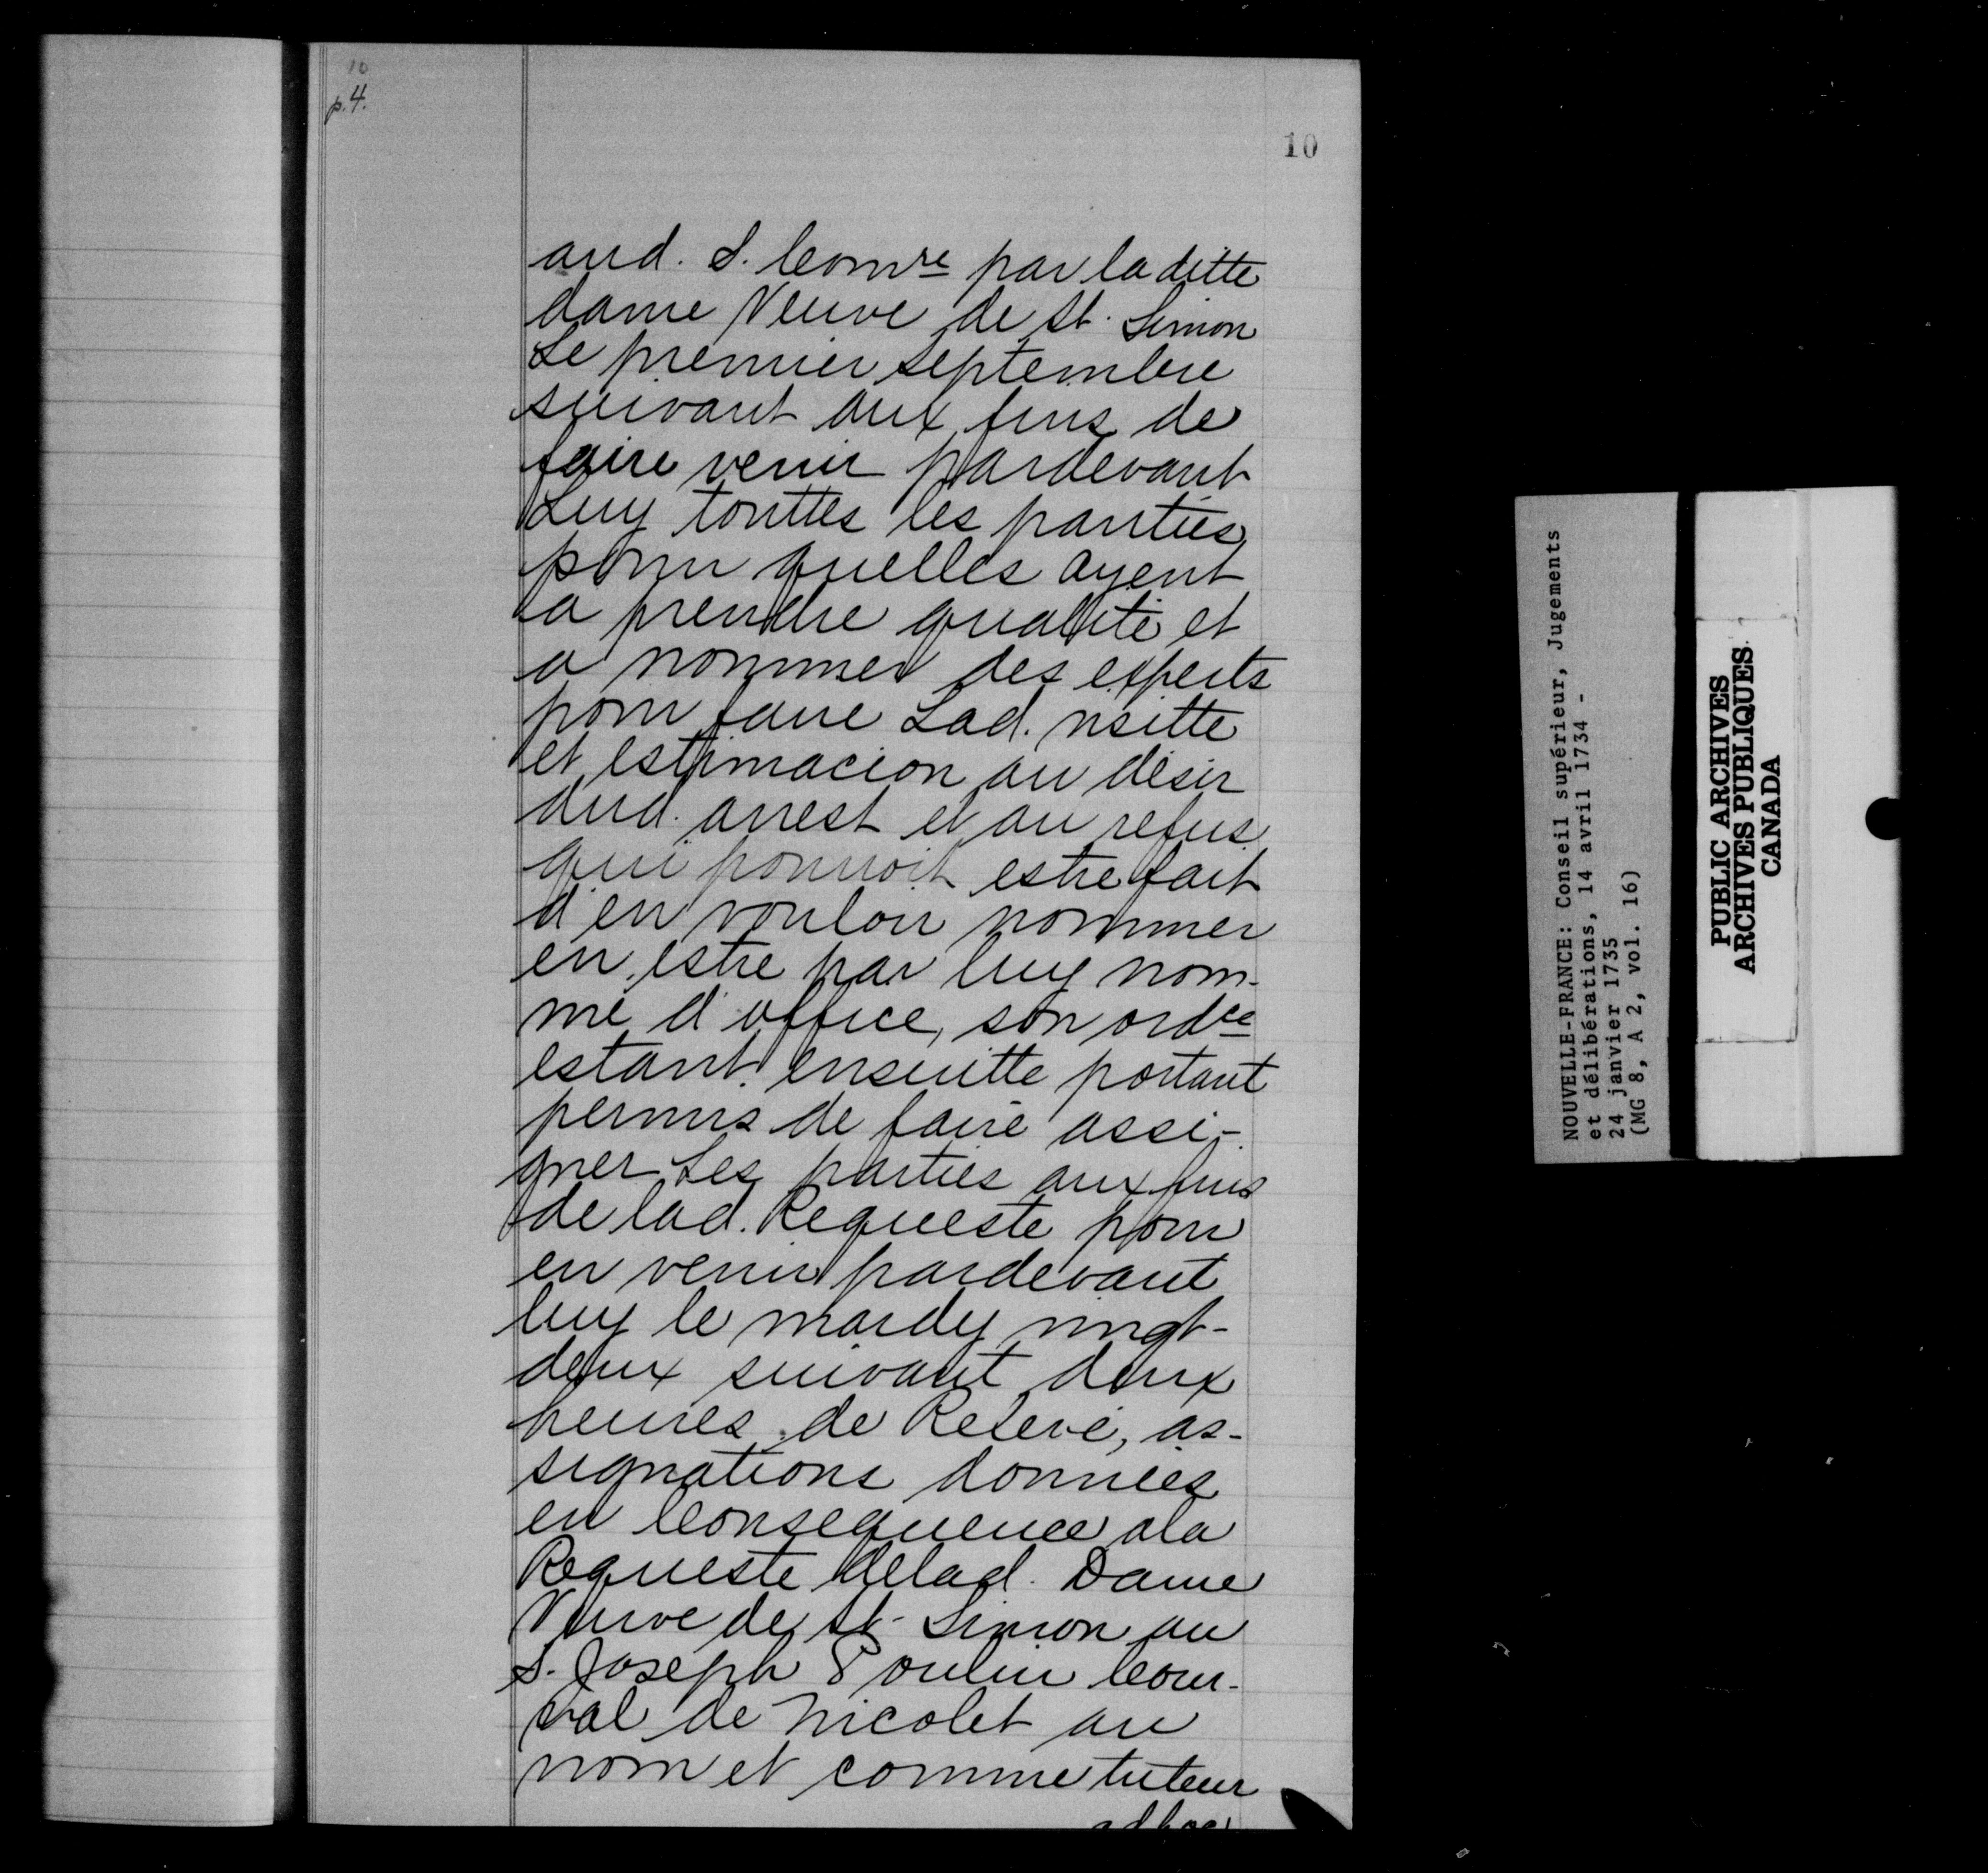 10
p.4.
10
aud. S. Comre par la ditte
dame Veuve de St. Simon
Le premier septembre
suivant aux fins de
faire venir pardevant
Luy touttes les parties
pour quelles ayent
a prendre qualité et
a nommer des experts
pour faire Lad. visitte
et estimacion au désir
dud. arrest et au refus
qui pourroit estre fait
d'en vouloir nommer
en estre par luy nom-
mé d'office, son ordce
estant ensuitte portant
permis de faire assi-
gner Les parties aux fins
de lad. Requeste pour
en venir pardevant
luy le mardy vingt-
deux suivant deux
heures de Relevé, as-
signations données
en Consequence a la
Requeste de lad. Dame
Veuve de St. Simon au
S. Joseph Poulin Cour-
val de Nicolet au
nom et comme tuteur
adhoc
NOUVELLE-FRANCE: Conseil supérieur, Jugements
et délibérations, 14 avril 1734 -
24 janvier 1735
(MG 8, A 2, vol. 16)
PUBLIC ARCHIVES
ARCHIVES PUBLIQUES
CANADA